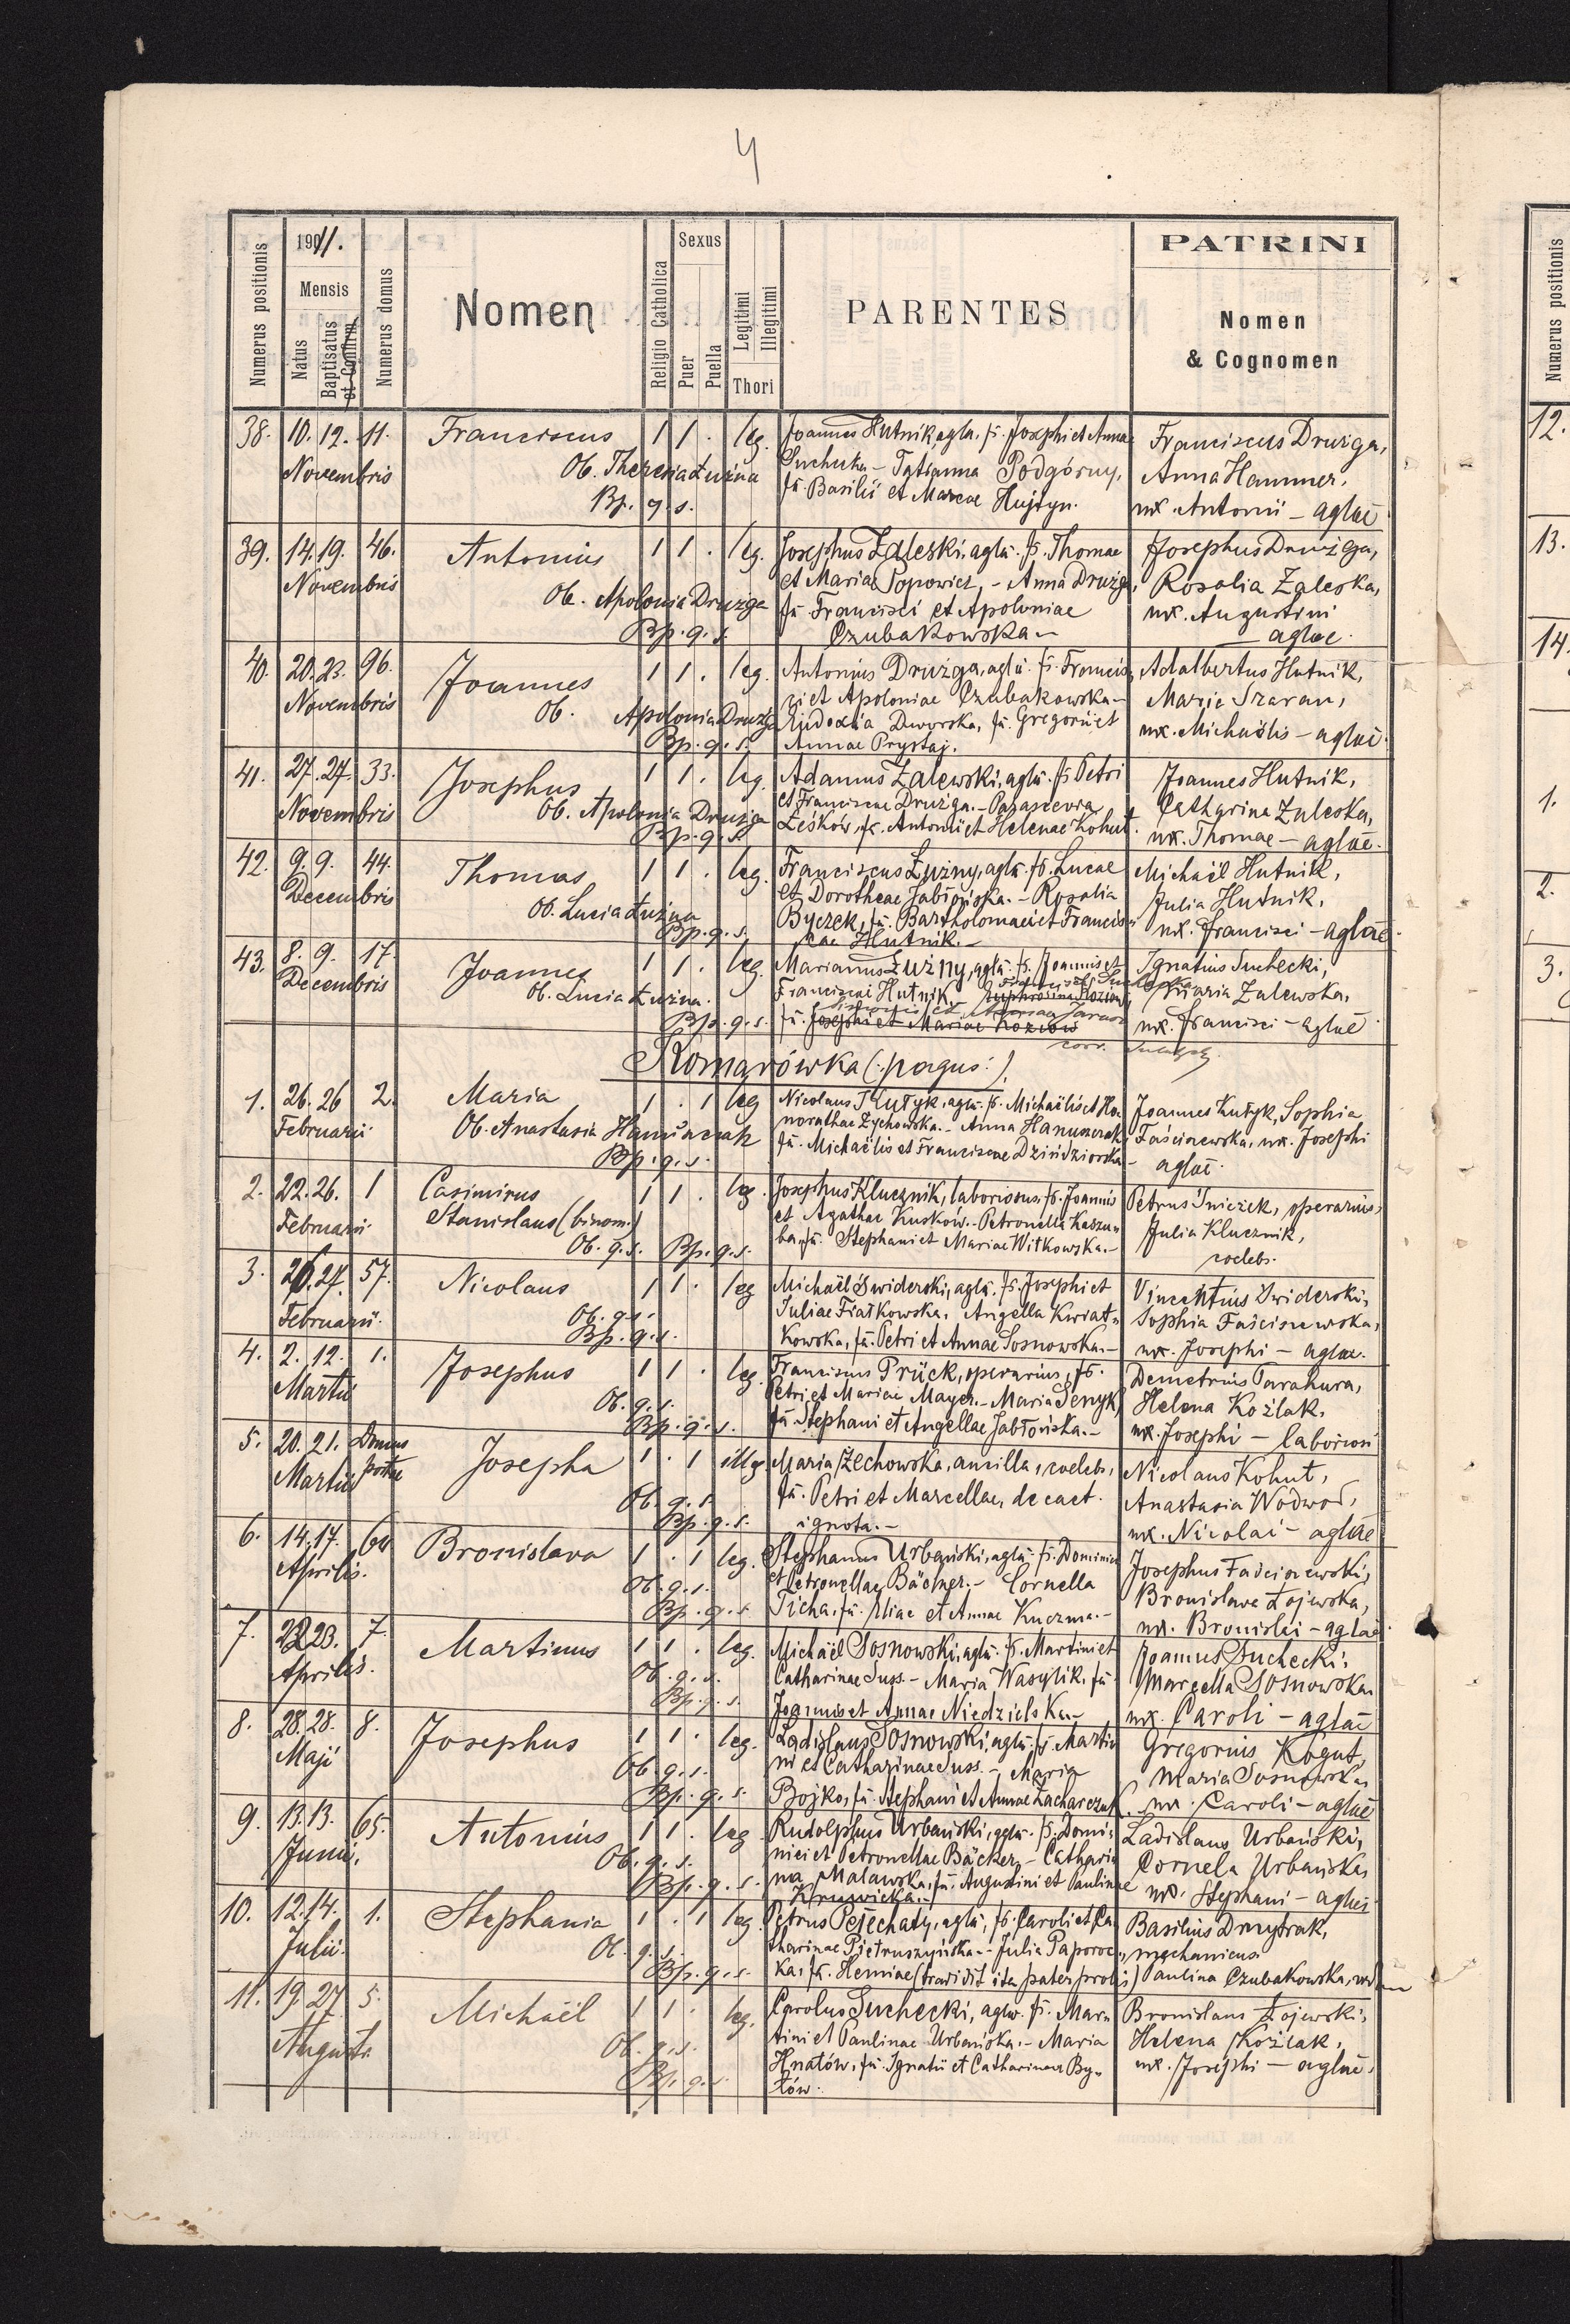 4
Numerus positionis
1911.
Mensis
Natus
Baptisatus
et Confirm.
Numerus domus
Nomen
Religio Catholica
Sexus
Puer
Puella
Legitimi
Illegitimi
Thori
PARENTES
PATRINI
Nomen
& Cognomen
38. 10. 12. 11.
Novembris
Franciscus
Ob. Theresia Łużna
Bp. q. s.
1 1 . leg.
Joannes Hutnik, agla. fs. Josephi et Annae
Suchecka - Tatianna Podgórny,
fa. Basilii et Mareae Hujtyn.
Franciscus Drużga,
Anna Hammer,
ux. Antonii - aglae
39. 14. 19. 46.
Novembris
Antonius
Ob. Apolonia Drużga
Bp. q. s.
1 1 . leg.
Josephus Zaleski, agla. fs. Thomae
et Mariae Popowicz, - Anna Drużga,
fa. Francisci et Apoloniae
Czubakowska -
Josephus Drużga,
Rosalia Zaleska,
ux. Augustini
aglae.
40. 20. 23. 96.
Novembris
Joannes
Ob. Apolonia Drużga
Bp. q. s.
1 1 . leg.
Antonius Drużga, agla. fs. Francis-
ci et Apoloniae Czubakowska -
Eudoxia Dworska, fa. Gregorii et
Annae Prystaj.
Adalbertus Hutnik,
Maria Szaran,
ux. Michaëlis - aglae.
41. 27. 27. 33.
Novembris
Josephus
Ob. Apolonia Drużga
Bp. q. s.
1 1 . leg.
Adamus Zalewski, agla. fs. Petri
et Franciscae Drużga. - Parascevia
Leśków, fa. Antonii et Helenae Kohut.
Joannes Hutnik,
Catharina Zaleska,
ux. Thomae - aglae.
42. 9. 9. 44.
Decembris
Thomas
Ob. Lucia Łużna
Bp. q. s.
1 1 . leg.
Franciscus Łużny, agla. fs. Lucae
et Dorotheae Jabłońska. - Rosalia
Byczek, fa. Bartholomaei et Francis-
cae Hutnik. -
Michaël Hutnik,
Julia Hutnik,
ux. Francisci - aglae.
43. 8. 9. 17.
Decembris
Joannes
Ob. Lucia Łużna.
Bp. q. s.
1 1 . leg.
Marianus Łużny, agla. fs. Joannis et
Franciscae Hutnik,
fa. Josephi et Mariae Koziow
Ignatius Suchecki,
Maria Zalewska,
ux. Francisci - aglae
Komarówka (: pagus :)
1. 26. 26 2.
Februarii
Maria
Ob. Anastasia Hanuszczak
Bp. q. s.
1 . 1 leg
Nicolaus Kutyk, agla. fs. Michaëlis et Ho-
norathae Zychowska. - Anna Hanuszczak,
fa. Michaëlis et Franciscae Dzindziorska -
Joannes Kutyk, Sophia
Faściszewska, ux. Josephi
aglae.
2. 22. 26. 1
Februarii
Casimirus
Stanislaus (binom.)
Ob. q. s. Bp. q. s.
1 1 . leg.
Josephus Klucznik, laboriosus, fs. Joannis
et Agathae Kusków. - Petronella Kaszu-
ba, fa. Stephani et Mariae Witkowska. -
Petrus Śnieżek, operarius,
Julia Klucznik,
coelebs.
3. 26. 27. 57.
Februarii.
Nicolaus
Ob. q. s.
Bp. q. s.
1 1 . leg
Michaël Świderski, agla. fs. Josephi et
Juliae Fiałkowska. Angella Kwiat-
kowska, fa. Petri et Annae Sosnowska. -
Vincentius Świderski,
Sophia Faściszewska,
ux. Josephi - aglae.
4. 2. 12. 1.
Martii
Josephus
Ob. q. s.
Bp. q. s.
1 1 . leg.
Franciscus Prück, operarius, fs.
Petri et Mariae Mayer. - Maria Senyk,
fa. Stephani et Angellae Jabłońska. -
Demetrius Parahura,
Helena Koźlak,
ux. Josephi - laboriosi
5. 20. 21. Domus
Martii
Josepha
Ob. q. s.
Bp. q. s.
1 . 1 illeg.
Maria Zechowska, ancilla, coelebs,
fa. Petri et Marcellae, de caet.
ignota. -
Nicolaus Kohut,
Anastasia Wodwod,
ux. Nicolai - aglae
6. 14. 17.
Aprilis.
Bronislava
Ob. q. s.
Bp. q. s.
1 . 1 leg.
Stephanus Urbański, agla. fs. Dominici
et Petronellae Bäcker. - Cornella
Ticha, fa. Iliae et Annae Kuczma. -
Josephus Faściszewski,
Bronislava Łojewska,
ux. Bronislai - aglae.
7. 22. 23. 7.
Aprilis.
Martinus
Ob. q. s.
Bp. q. s.
1 1 . leg.
Michaël Sosnowski, agla. fs. Martini et
Catharinae Suss. - Maria Wasylik, fa.
Joannis et Annae Niedzielska. -
Joannes Suchecki,
Marcella Sosnowska
ux. Caroli - aglae
8. 28. 28. 8.
Maji
Josephus
Ob. q. s.
Bp. q. s.
1 1 . leg.
Ladislaus Sosnowski, agla. fs. Marti-
ni et Catharinae Suss. - Maria
Bojko, fa. Stephani et Annae Zacharczuk.
Gregorius Kogut,
Maria Sosnowska
ux. Caroli - aglae
9. 13. 13. 65.
Junii.
Antonius
Ob. q. s.
Bp. q. s.
1 1 . leg
Rudolphus Urbański, agla. fs. Domi-
nici et Petronellae Bäcker, - Cathari-
na Malawska, fa. Augustini et Paulinae
Krawicka. -
Ladislaus Urbański,
Cornela Urbańska,
ux. Stephani - aglae.
10. 12. 14. 1.
Julii.
Stephania
Ob. q. s.
Bp. q. s.
1 . 1 leg
Petrus Petechaty, agla, fs. Caroli et Ca-
tharinae Pietruszyńska. - Julia Paproc-
ka, fa. Heniae (tradidit ita pater prolis)
Basilius Dmytrak,
mechanicus
Paulina Czubakowska,
11. 19. 27 5.
Augusti.
Michaël
Ob. q. s.
Bp. q. s.
1 1 . leg.
Carolus Suchecki, agla. fs. Mar-
tini et Paulinae Urbańska. - Maria
Hnatów, fa. Ignatii et Catharinae By-
tów.
Bronislaus Łojewski,
Helena Koźlak,
ux. Josephi - aglae.
Numerus positionis
12.
13.
14.
1.
2.
3.